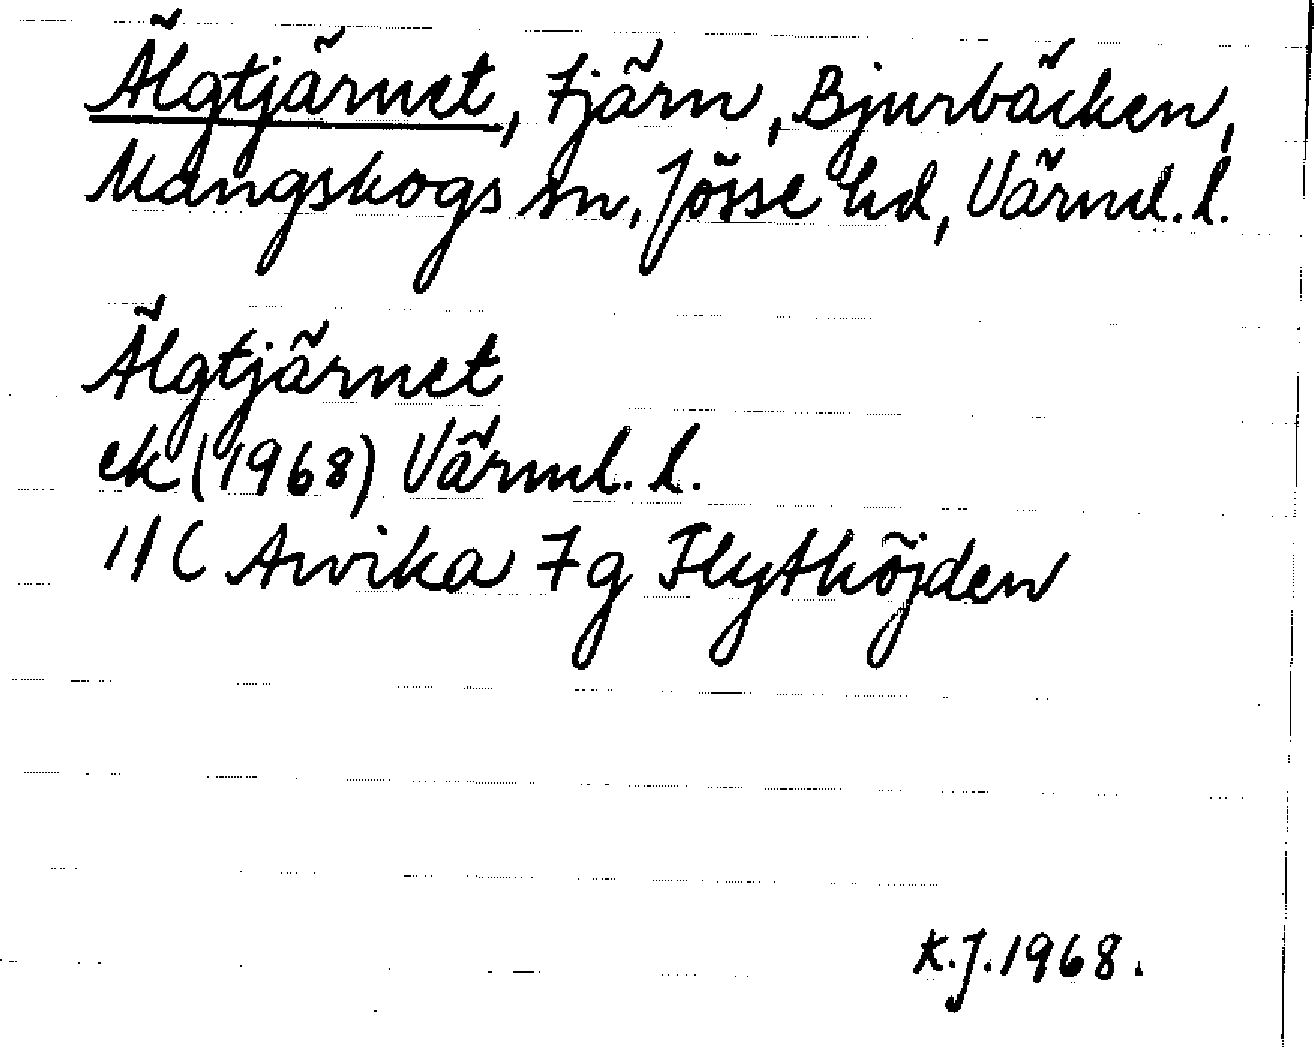 Älgtjärnet, Tjärn, Bjurbäcken,
Mangskogs sn, Jösse hd, Värml. l.
Älgtjärnet
ek (1968) Värml. l.
11C Arvika 7g Flythöjden
K.J. 1968.